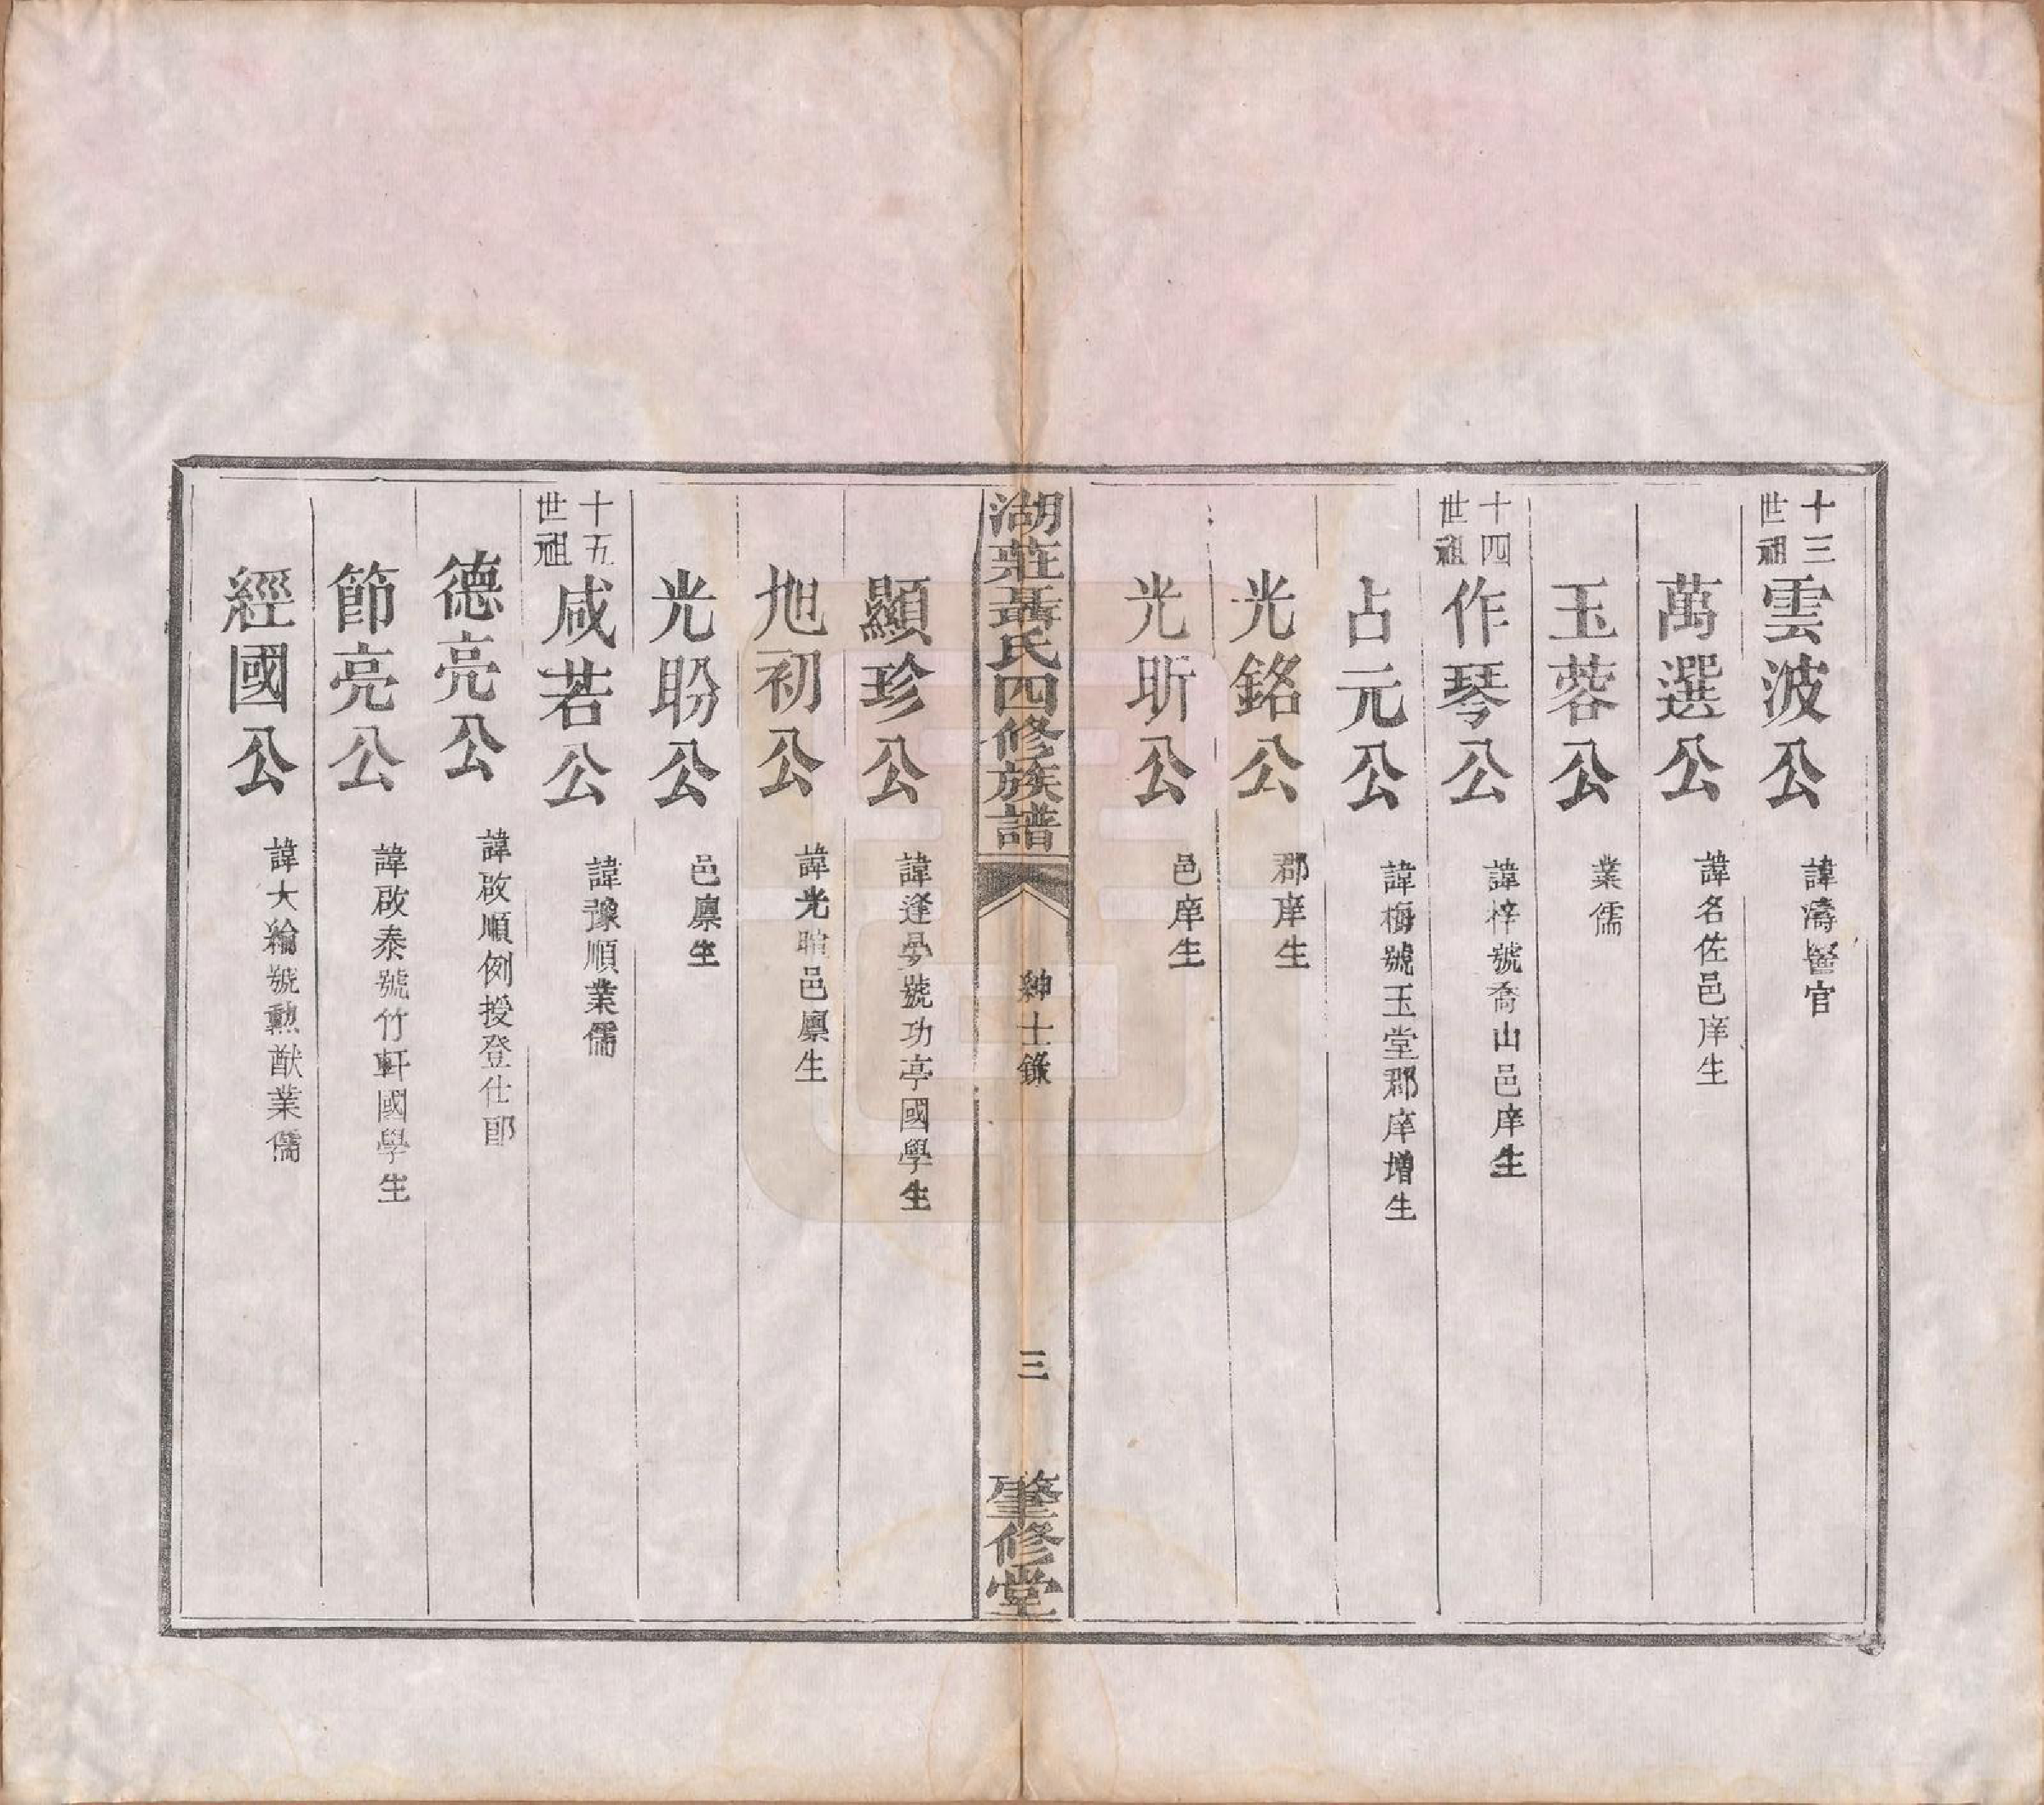 十三世祖 雲波公 諱濤醫官
萬選公 諱名佐邑庠生
玉蓉公 業儒
十四世祖 作琴公 諱梓號喬山邑庠生
占元公 諱梅號玉堂郡庠增生
光銘公 郡庠生
光昕公 邑庠生
湖莊聶氏四修族譜 紳士錄 三 肇修堂
顯珍公 諱逢勗號功亭國學生
旭初公 諱光暄邑廪生
光盼公 邑廪生
十五世祖 咸若公 諱豫順業儒
德亮公 諱啟順例授登仕郎
節亮公 諱啟泰號竹軒國學生
經國公 諱大綸號勲猷業儒